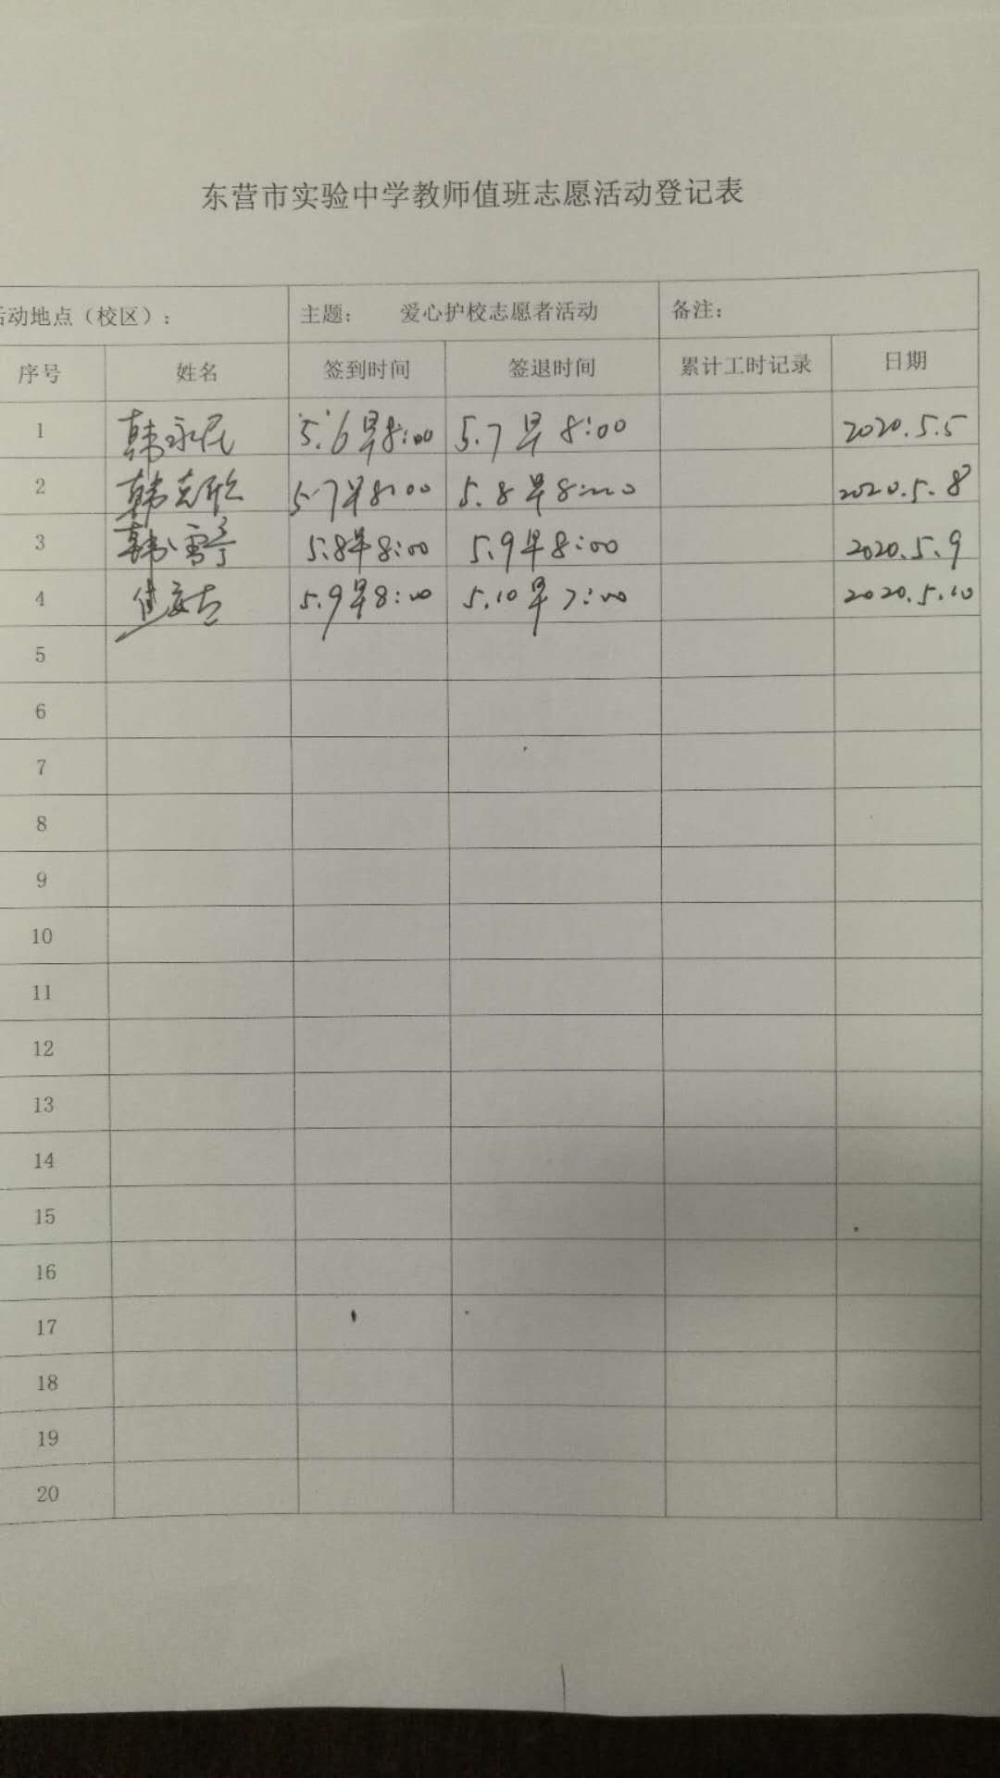 东营市实验中学教师值班志愿活动登记表
活动地点（校区）： 主题： 爱心护校志愿者活动 备注：
序号 姓名 签到时间 签退时间 累计工时记录 日期
1 韩永民 5.6早8:00 5.7早8:00 2020.5.5
2 韩克欣 5.7早8:00 5.8早8:00 2020.5.8
3 韩雪亭 5.8早8:00 5.9早8:00 2020.5.9
4 5.9早8:00 5.10早7:00 2020.5.10
5
6
7
8
9
10
11
12
13
14
15
16
17
18
19
20